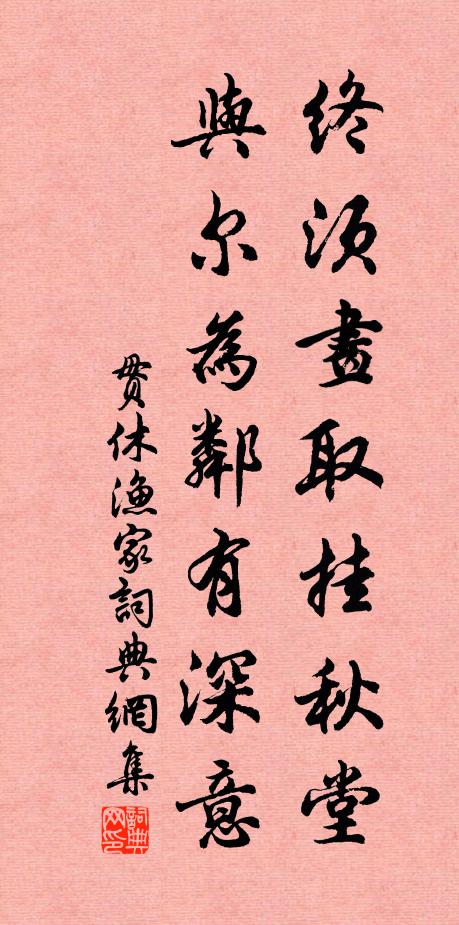 終須畫取挂秋堂
與尔為鄰有深意
貫休漁家詞典網集
詞典网印